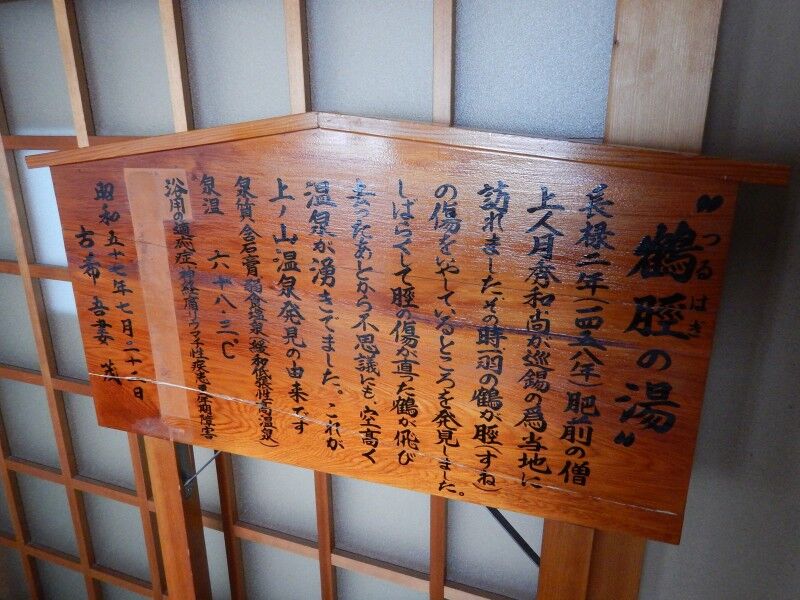 “鶴脛の湯”
つるはぎ
長禄二年(一四五八年)肥前の僧
上人月秀和尚が巡錫の為当地に
訪れました。その時一羽の鶴が脛(すね)
の傷をいやしているところを発見しました。
しばらくして脛の傷が直った鶴が飛び
去ったあとから不思議にも、空高く
温泉が湧きでました。これが
上ノ山温泉発見の由来です
泉質 含石膏弱食塩泉(緩和低張性高温泉)
泉温 六十八・三℃
浴用の適応症 神経痛リウマチ性疾患
昭和五十七年七月二十二日
古希 吾妻 茂